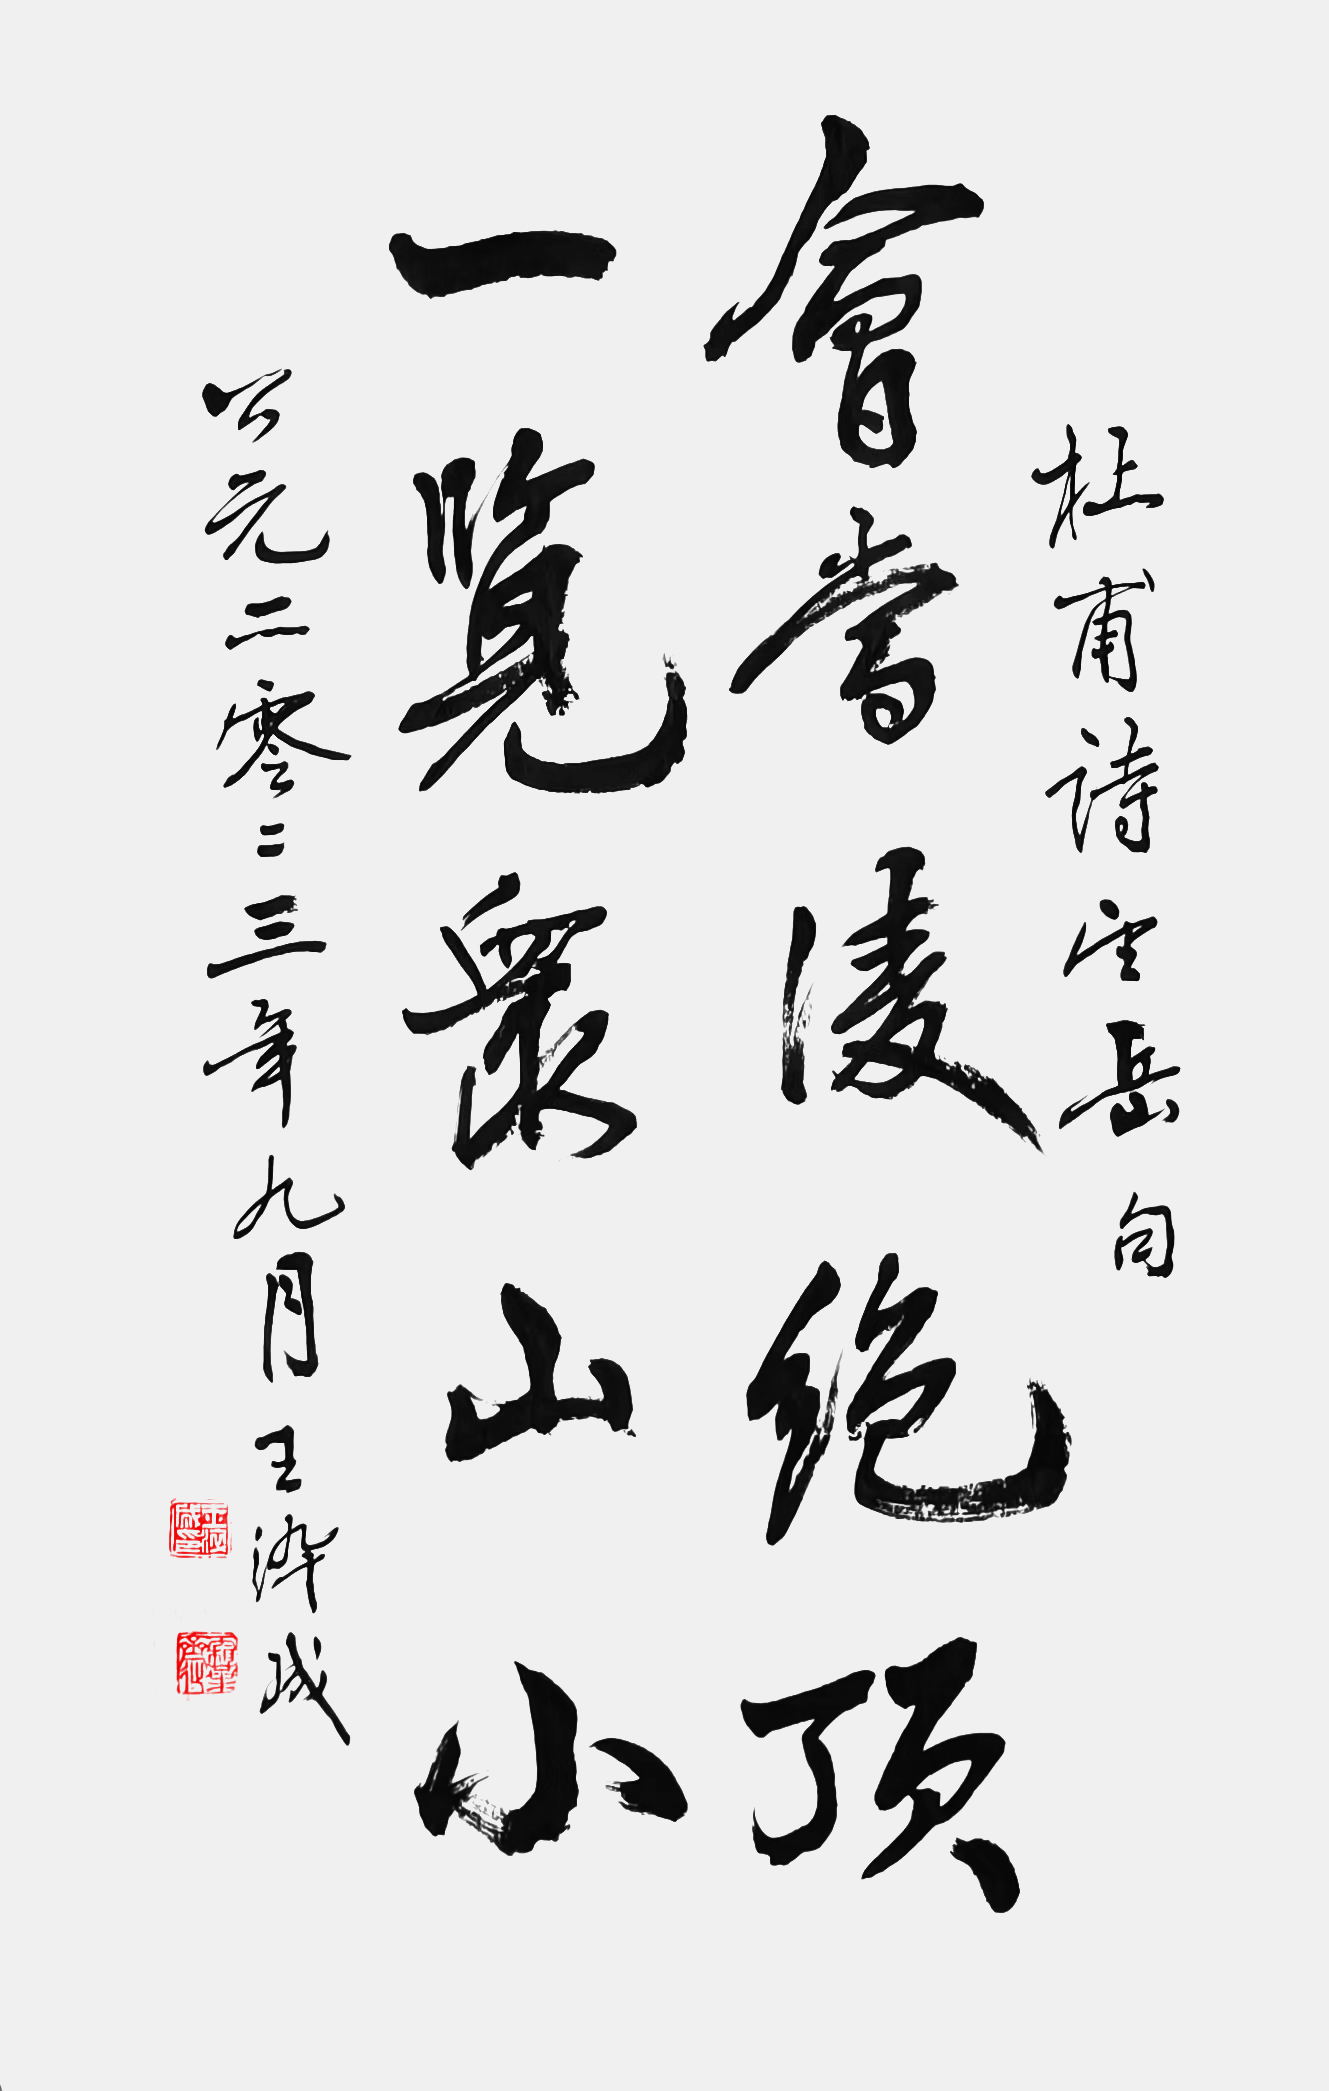 杜甫詩望岳句
會當凌絕頂
一覽衆山小
公元二零二三年九月王